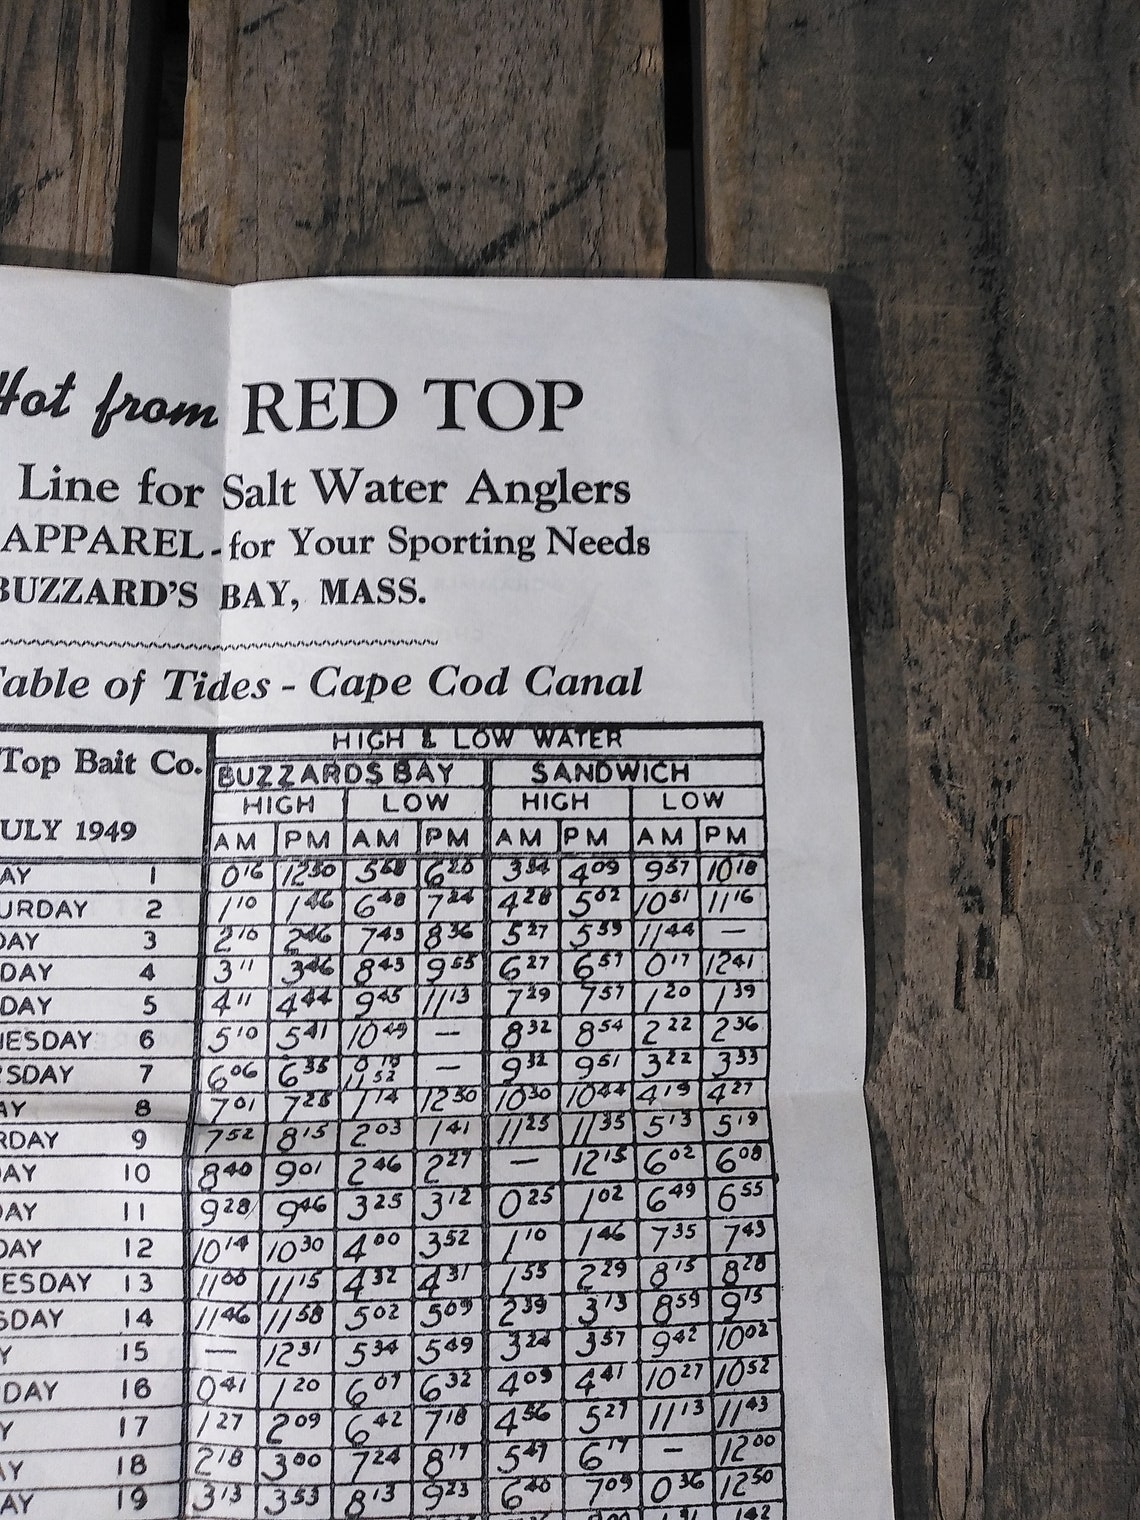 Hot from RED TOP
Line for Salt Water Anglers
APPAREL - for Your Sporting Needs
BUZZARD'S BAY, MASS.
Table of Tides - Cape Cod Canal
HIGH & LOW WATER
Top Bait Co. BUZZARDS BAY SANDWICH
HIGH LOW HIGH LOW
ULY 1949 AM PM AM PM AM PM AM PM
AY 1 0 16 12 50 5 58 6 20 3 34 4 09 9 57 10 18
URDAY 2 1 10 1 46 6 48 7 24 4 28 5 02 10 51 11 16
DAY 3 2 10 2 46 7 43 8 36 5 27 5 59 11 44 —
DAY 4 3 11 3 46 8 43 9 55 6 27 6 57 0 17 12 41
DAY 5 4 11 4 44 9 45 11 13 7 29 7 57 1 20 1 39
NESDAY 6 5 10 5 41 10 49 — 8 32 8 54 2 22 2 36
RSDAY 7 6 06 6 35 0 18 11 52 — 9 32 9 51 3 22 3 33
AY 8 7 01 7 25 1 14 12 50 10 30 10 44 4 19 4 27
RDAY 9 7 52 8 15 2 03 1 41 11 25 11 35 5 13 5 19
AY 10 8 40 9 01 2 46 2 27 — 12 15 6 02 6 08
AY 11 9 28 9 46 3 25 3 12 0 25 1 02 6 49 6 55
DAY 12 10 14 10 30 4 00 3 52 1 10 1 46 7 35 7 43
ESDAY 13 11 00 11 15 4 32 4 31 1 55 2 29 8 15 8 28
SDAY 14 11 46 11 58 5 02 5 09 2 39 3 13 8 59 9 15
Y 15 — 12 31 5 34 5 49 3 24 3 57 9 42 10 02
DAY 16 0 41 1 20 6 07 6 32 4 09 4 41 10 27 10 52
Y 17 1 27 2 09 6 42 7 18 4 56 5 27 11 13 11 43
AY 18 2 18 3 00 7 24 8 17 5 47 6 17 — 12 00
AY 19 3 13 3 53 8 13 9 23 6 40 7 09 0 36 12 50